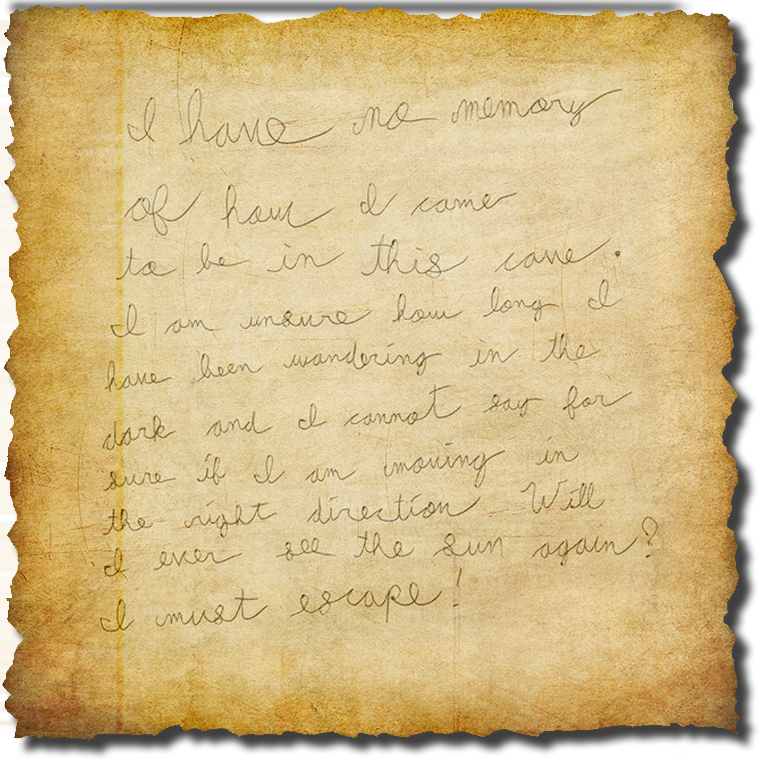 I have no memory
of how I came
to be in this cave.
I am unsure how long I
have been wandering in the
dark and I cannot say for
sure if I am moving in
the right direction Will
I ever see the sun again?
I must escape!